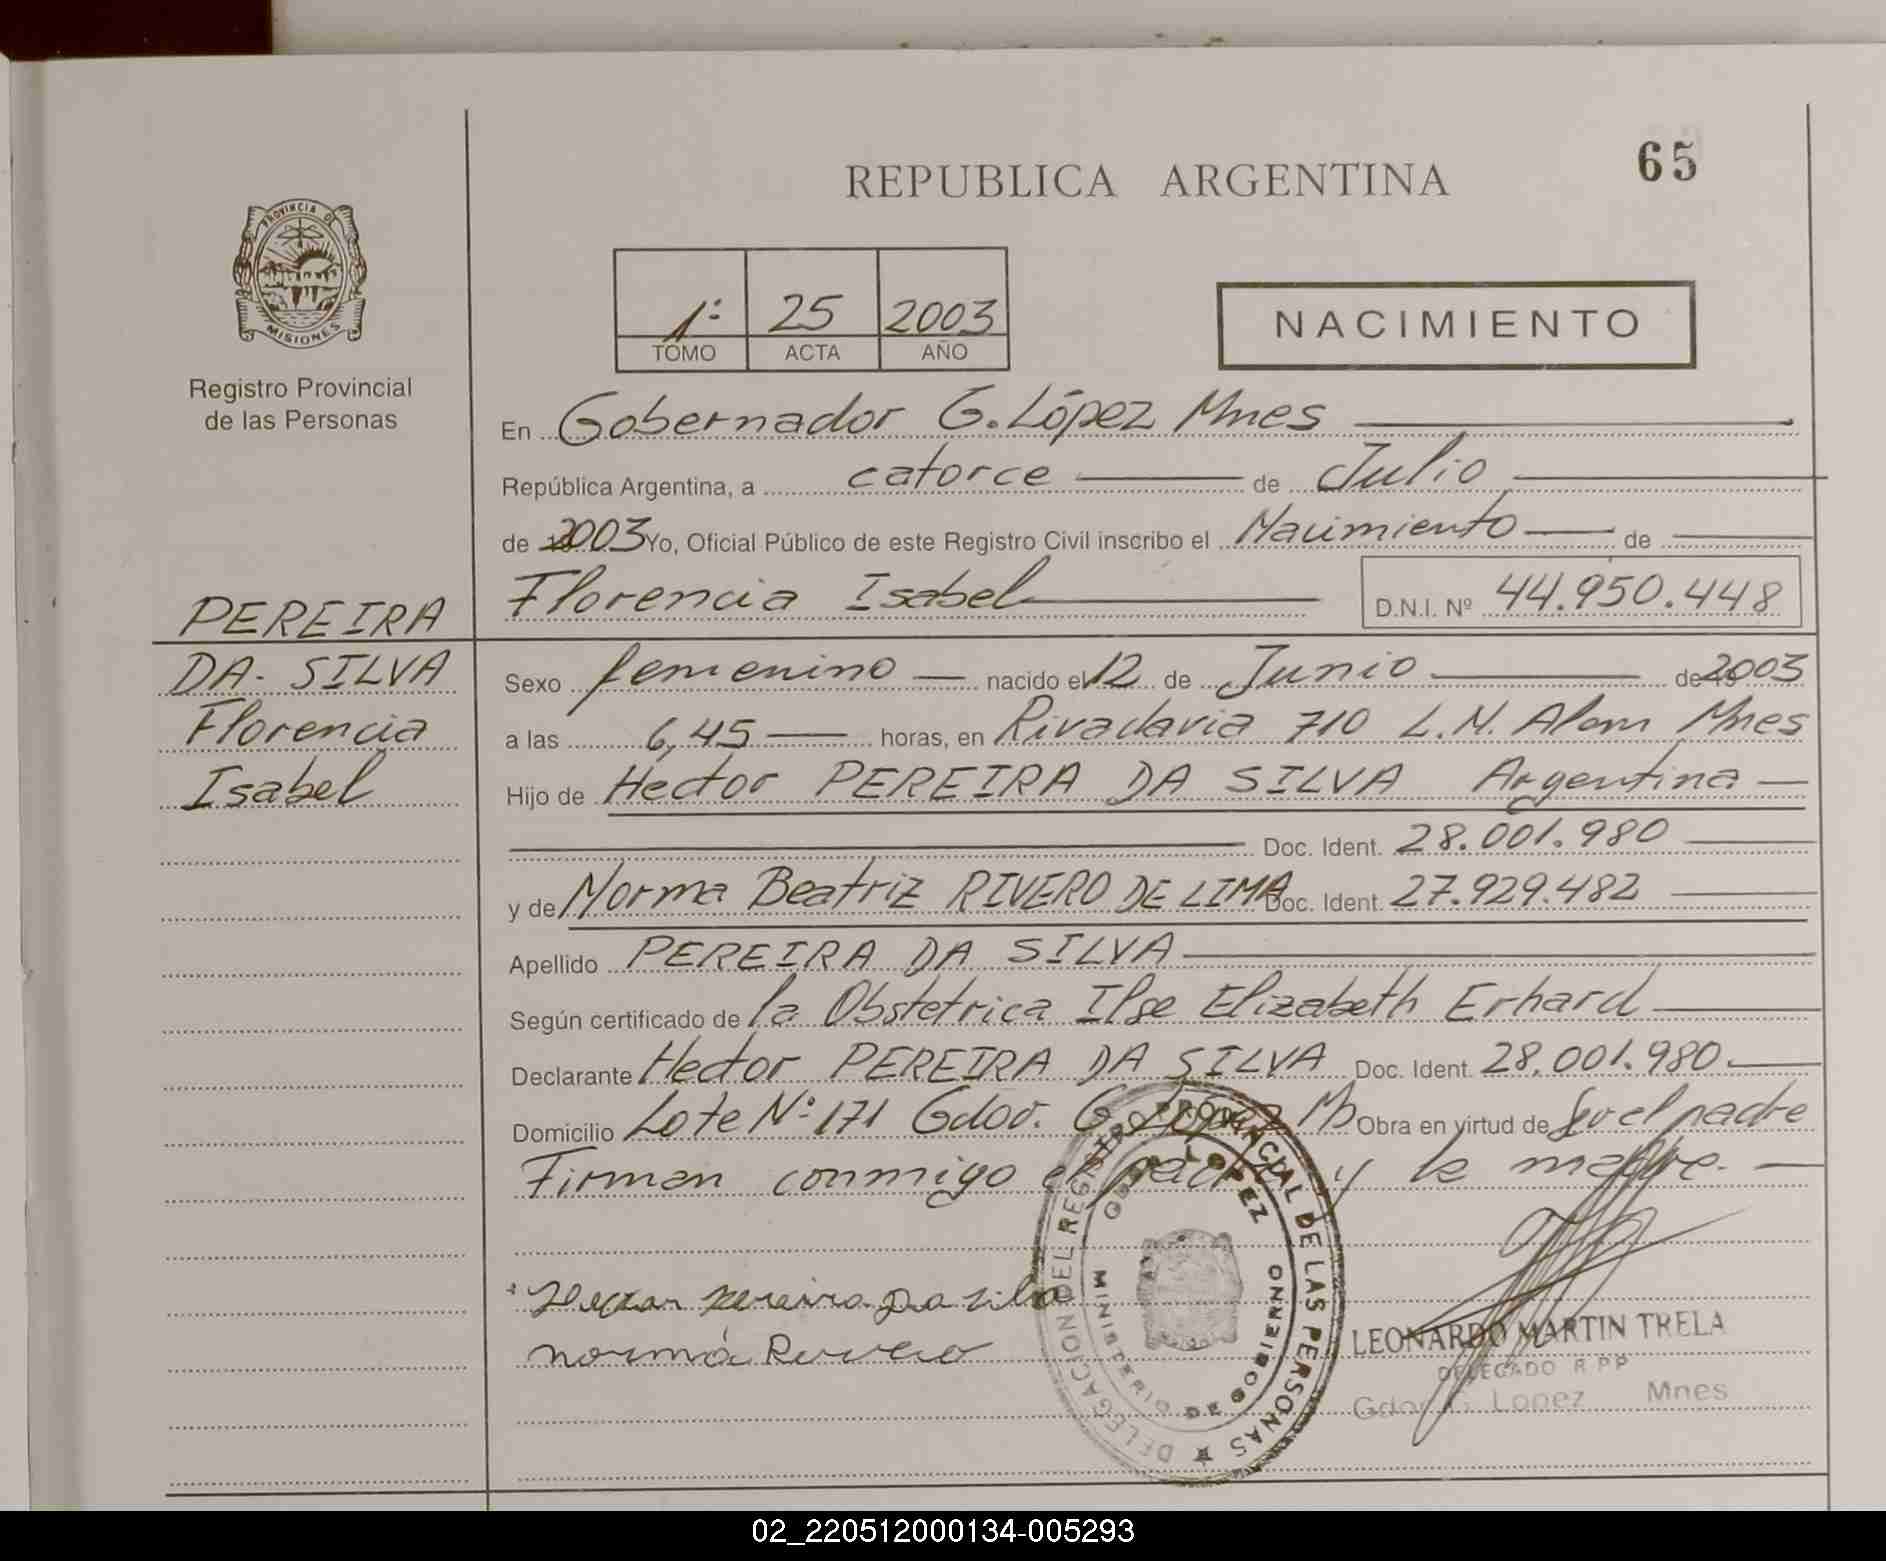 65
REPUBLICA ARGENTINA
PROVINCIA DE
MISIONES
Registro Provincial
de las Personas
1º 25 2003
TOMO ACTA AÑO
NACIMIENTO
En Gobernador G. López Mnes
República Argentina, a catorce de Julio
de 2003 Yo, Oficial Público de este Registro Civil inscribo el Nacimiento de
Florencia Isabel D.N.I. Nº 44.950.448
PEREIRA
DA SILVA
Florencia
Isabel
Sexo femenino nacido el 12 de Junio de 2003
a las 6,45 horas, en Rivadavia 710 L.N. Alem Mnes
Hijo de Hector PEREIRA DA SILVA Argentina
Doc. Ident. 28.001.980
y de Norma Beatriz RIVERO DE LIMA Doc. Ident. 27.929.482
Apellido PEREIRA DA SILVA
Según certificado de la Obstetrica Ilse Elizabeth Erhard
Declarante Hector PEREIRA DA SILVA Doc. Ident. 28.001.980
Domicilio Lote Nº 171 Gdor. G. López Ms Obra en virtud de el padre
Firman conmigo el padre y la madre.
pereira Da silva
norma Rivero
DELEGACION DEL REGISTRO PROVINCIAL DE LAS PERSONAS
LOPEZ
MINISTERIO DE GOBIERNO
LEONARDO MARTIN TRELA
DELEGADO R.P.P
Gdor G. Lopez Mnes
02_220512000134-005293